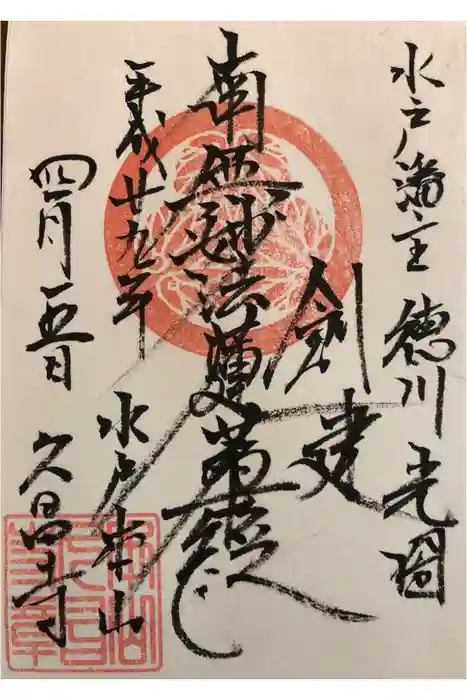 水戸藩主 徳川光圀
創建
南無妙法蓮華経
平成廿九年
四月五日
水戸本山
久昌寺